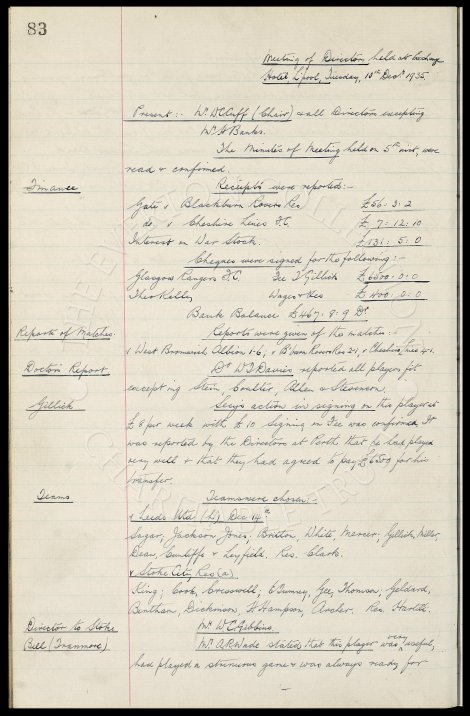 83
Meeting of Directors held at Exchange
Hotel, L'pool, Tuesday, 10th Decr 1935.
Present :- Mr. W C Cuff (Chair) & all Directors excepting
Mr. A Banks.
The Minutes of Meeting held on 5th inst, were
read & confirmed.
Finance
Receipts were reported:-
Gate v Blackburn Rovers Res £56 : 3 : 2
do. v Cheshire Lines F.C. £ 7 : 12 : 10
Interest on War Stock. £131 : 5 : 0
Cheques were signed for the following :-
Glasgow Rangers F.C. Fee T Gillick £6500 : 0 : 0
Theo Kelly Wages & Fees £400 : 0 : 0
Bank Balance £467 : 8 : 9 Dr.
Reports of Matches.
Reports were given of the matches :-
v West Bromwich Albion 1-6; v B'burn Rovers Res 2-1, v Cheshire Lines
Doctors Report
Dr W T Davies reported all players fit
excepting Stein, Coulter, Allen & Stevenson.
Gillick
Secy's action in signing on this player at
£8 per week with £10 Signing on Fee was confirmed. It
was reported by the Directors at Perth that he had played
very well & that they had agreed to pay £6500 for his
transfer.
Teams
Teams were chosen:-
v Leeds Utd (h) Dec 14th
Sagar, Jackson, Jones; Britton, White, Mercer; Gillick, Miller,
Dean, Cunliffe & Leyfield. Res. Clark.
v Stoke City Res (a).
King; Cook, Cresswell; Gee, Thomson; Geldard,
Bentham, Dickinson, H Hampson, Archer. Res.
Director to Stoke
Mr. W C Gibbins.
Bell (Tranmere)
Mr. A R Wade stated that this player was very useful,
had played a strenuous game & was always ready for